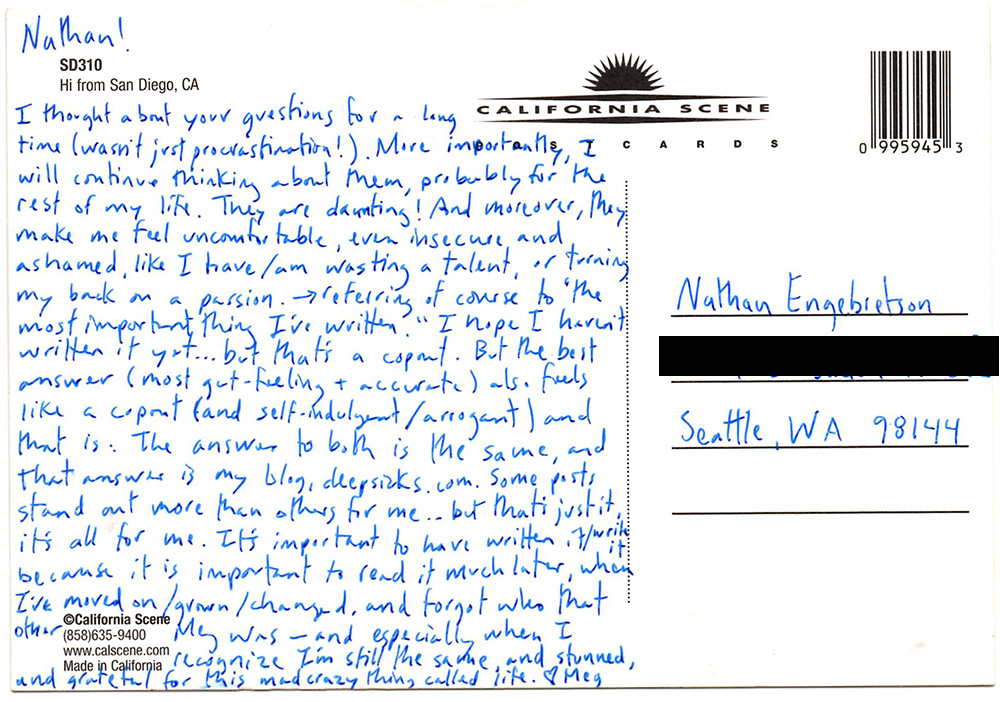 Nathan!
SD310
Hi from San Diego, CA
CALIFORNIA SCENE
POSTCARDS
0 995945 3
I thought about your questions for a long
time (wasn't just procrastination!). More importantly, I
will continue thinking about them, probably for the
rest of my life. They are daunting! And moreover, they
make me feel uncomfortable, even insecure and
ashamed, like I have/am wasting a talent, or turning
my back on a passion. →referring of course to "the
most important thing I've written." I hope I haven't
written it yet... but that's a copout. But the best
answer (most gut-feeling + accurate) also feels
like a copout (and self-indulgent/arrogant) and
that is: The answer to both is the same, and
that answer is my blog, deepsicks.com. Some posts
stand out more than others for me... but that's just it,
it's all for me. It's important to have written it/write it
because it is important to read it much later, when
I've moved on/grown/changed, and forgot who that
other Meg was – and especially when I
recognize I'm still the same, and stunned,
and grateful for this madcrazy thing called life. ♡ Meg
©California Scene
(858)635-9400
www.calscene.com
Made in California
Nathan Engebretson
Seattle, WA 98144